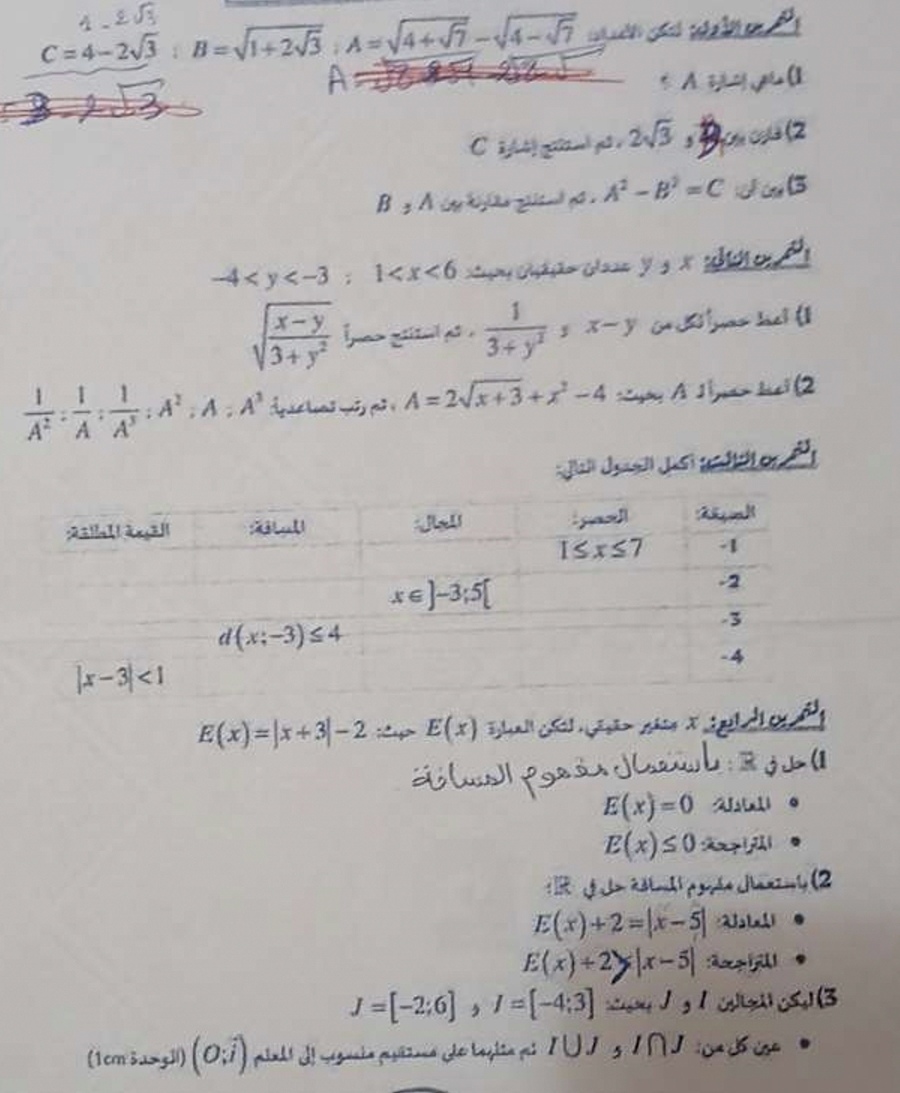 4 - 2√3
التمرين الأول: لتكن الأعداد A = √(4+√7) − √(4−√7) ; B = √(1+2√3) ; C = 4 − 2√3
A =
1) ماهي إشارة A ؟
2) قارن بين و 2√3 ، ثم استنتج إشارة C
3) بين أن: A² − B² = C ، ثم استنتج مقارنة بين A و B
التمرين الثاني: x و y عددان حقيقيان بحيث: 1 < x < 6 ; −4 < y < −3
1) أعط حصرا لكل من x − y و 1/(3+y²) ، ثم استنتج حصراً √((x−y)/(3+y²))
2) أعط حصرا لـ A بحيث: A = 2√(x+3) + x² − 4 ، ثم رتب تصاعدية: A³ ; A ; A² ; 1/A³ ; 1/A ; 1/A²
التمرين الثالث: أكمل الجدول التالي:
الصيغة: الحصر: المجال: المسافة: القيمة المطلقة:
-1 1 ≤ x ≤ 7
-2 x ∈ ]−3;5[
-3 d(x;−3) ≤ 4
-4 |x−3| < 1
التمرين الرابع: x متغير حقيقي، لتكن العبارة E(x) حيث: E(x) = |x+3| − 2
1) حل في ℝ : باستعمال مفهوم المسافة
• المعادلة: E(x) = 0
• المتراجحة: E(x) ≤ 0
2) باستعمال مفهوم المسافة حل في ℝ:
• المعادلة: E(x) + 2 = |x−5|
• المتراجحة: E(x) + 2 > |x−5|
3) ليكن المجالين I و J بحيث: I = [−4;3] و J = [−2;6]
• عين كل من: I∩J و I∪J ثم مثلهما على مستقيم منسوب إلى المعلم (O;i) (الوحدة 1cm)